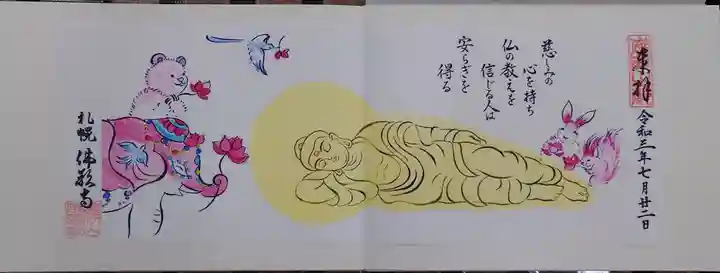 奉拝
令和三年七月廿二日
慈しみの
心を持ち
仏の教えを
信じる人は
安らぎを
得る
札幌 佛願寺